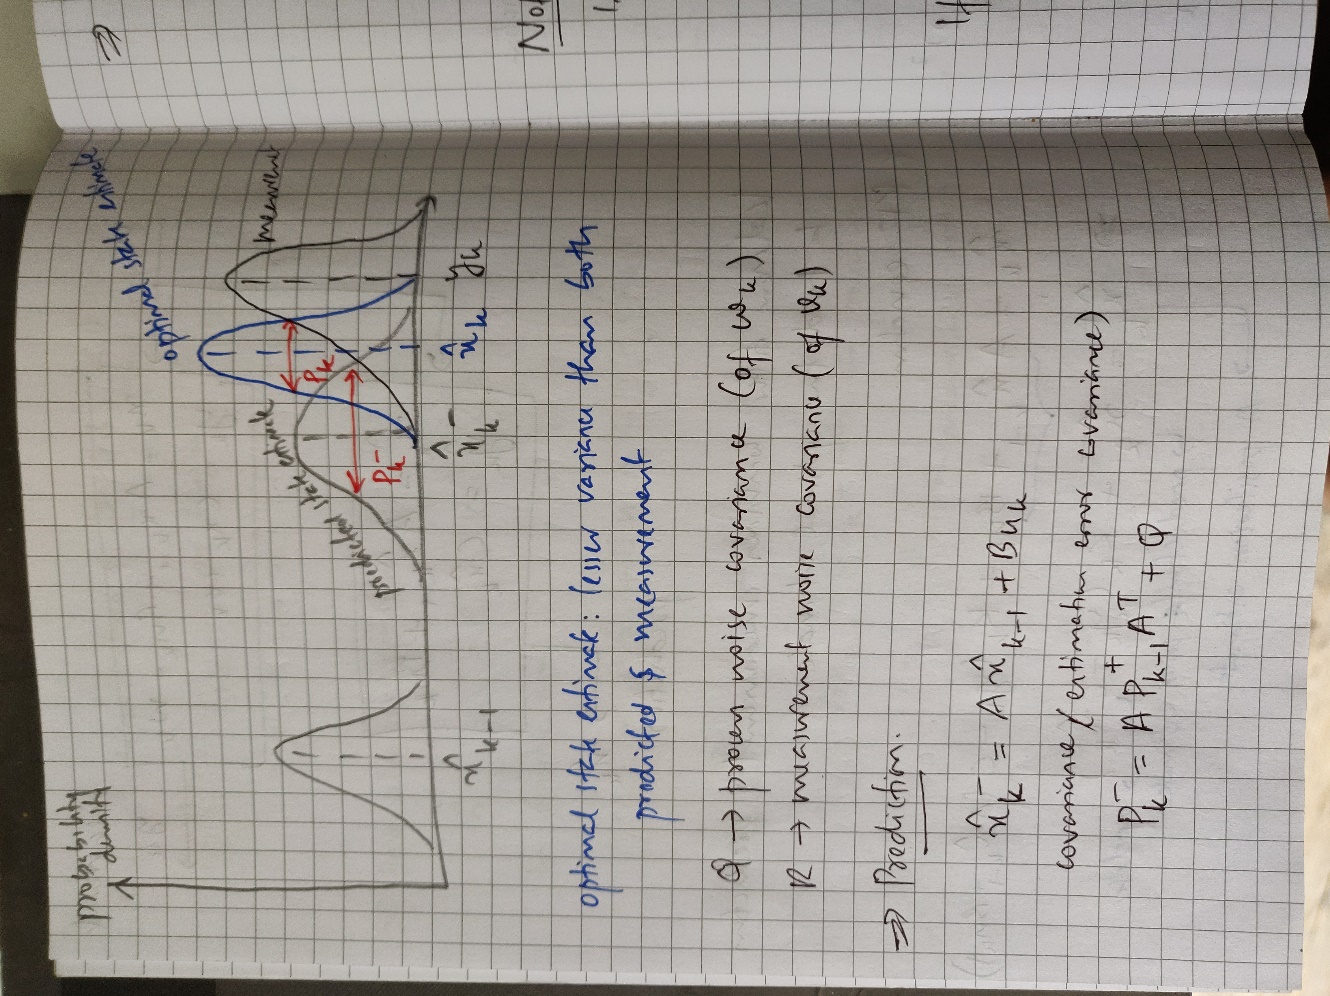 probability
density
optimal state estimate
measurement
predicted state estimate
P_k
P_k^-
x̂_{k-1}
x̂_k^-
x̂_k
y_k
optimal state estimate: lesser variance than both
predicted & measurement
Q → process noise covariance (of w_k)
R → measurement noise covariance (of v_k)
⇒ Prediction.
x̂_k^- = A x̂_{k-1} + B u_k
covariance (estimation error covariance)
P_k^- = A P_{k-1}^+ A^T + Q
⇒